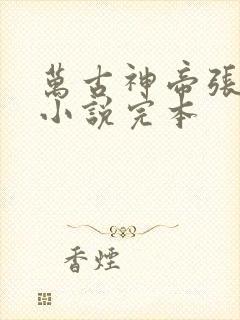 萬古神帝張
小說完本
香煙